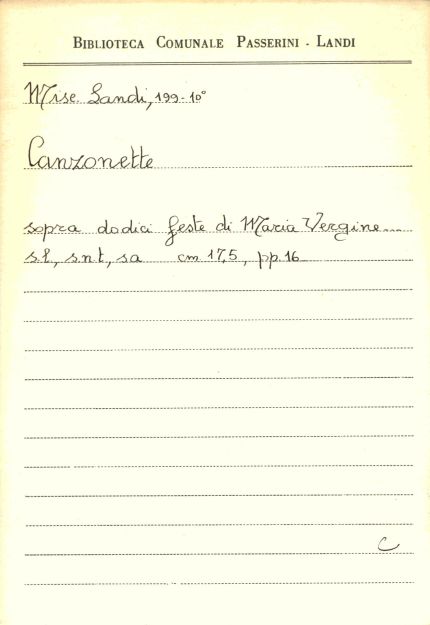 BIBLIOTECA COMUNALE PASSERINI - LANDI
Misc. Landi, 199-10°
Canzonette
sopra dodici feste di Maria Vergine...
s.l, s.n.t, s.a cm 17,5, pp. 16
C